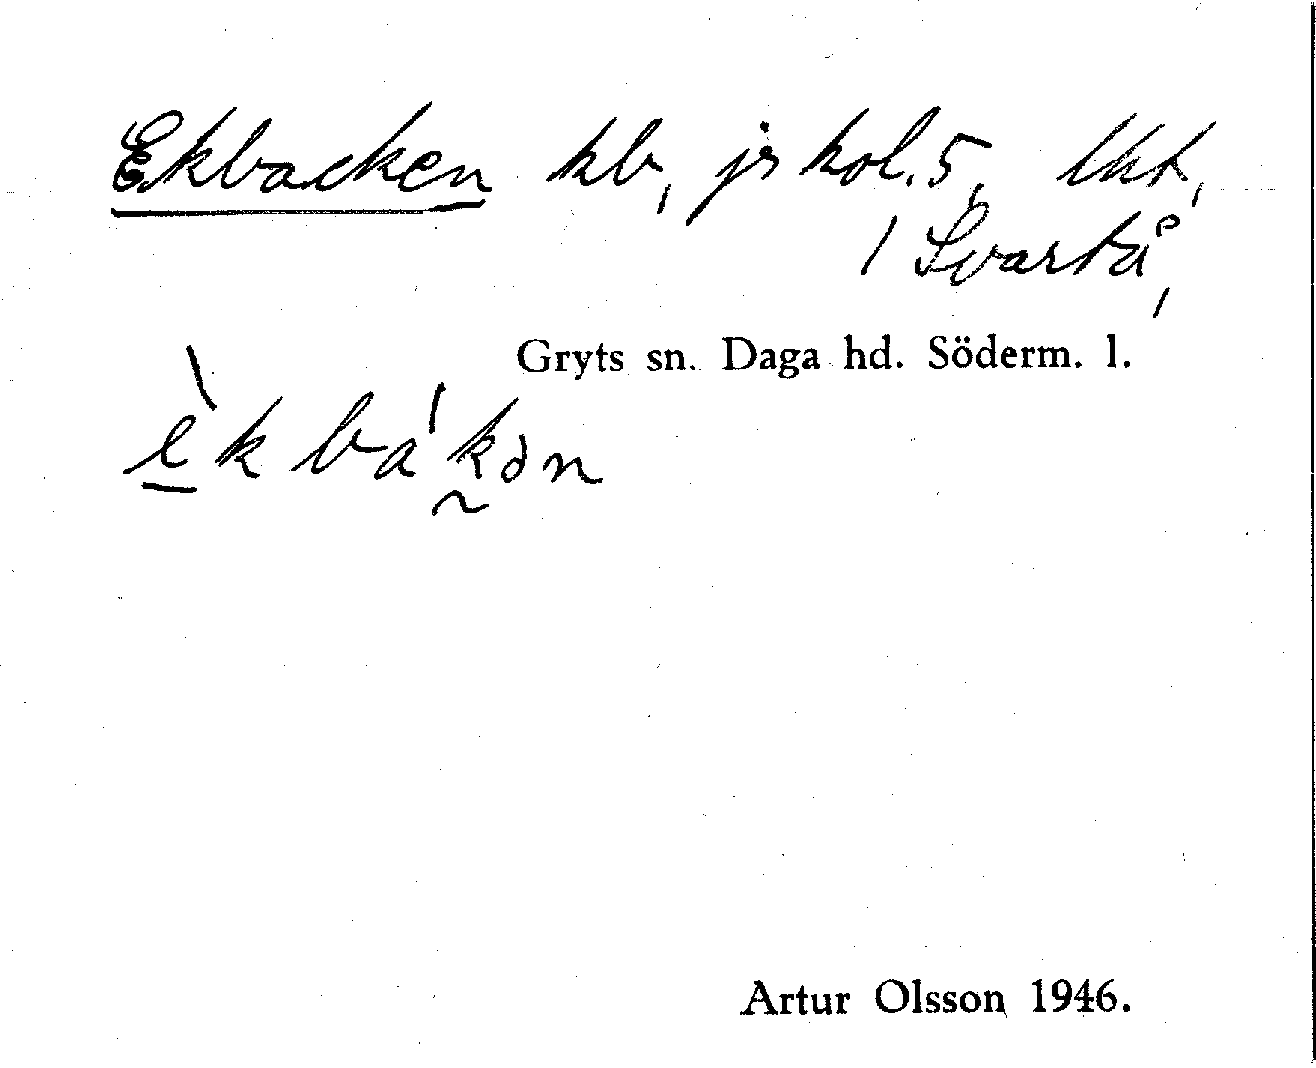 Ekbacken kb, js kol. 5, lht,
1 Svartå,
Gryts sn. Daga hd. Söderm. l.
è̲k ba'k̰ən
Artur Olsson 1946.